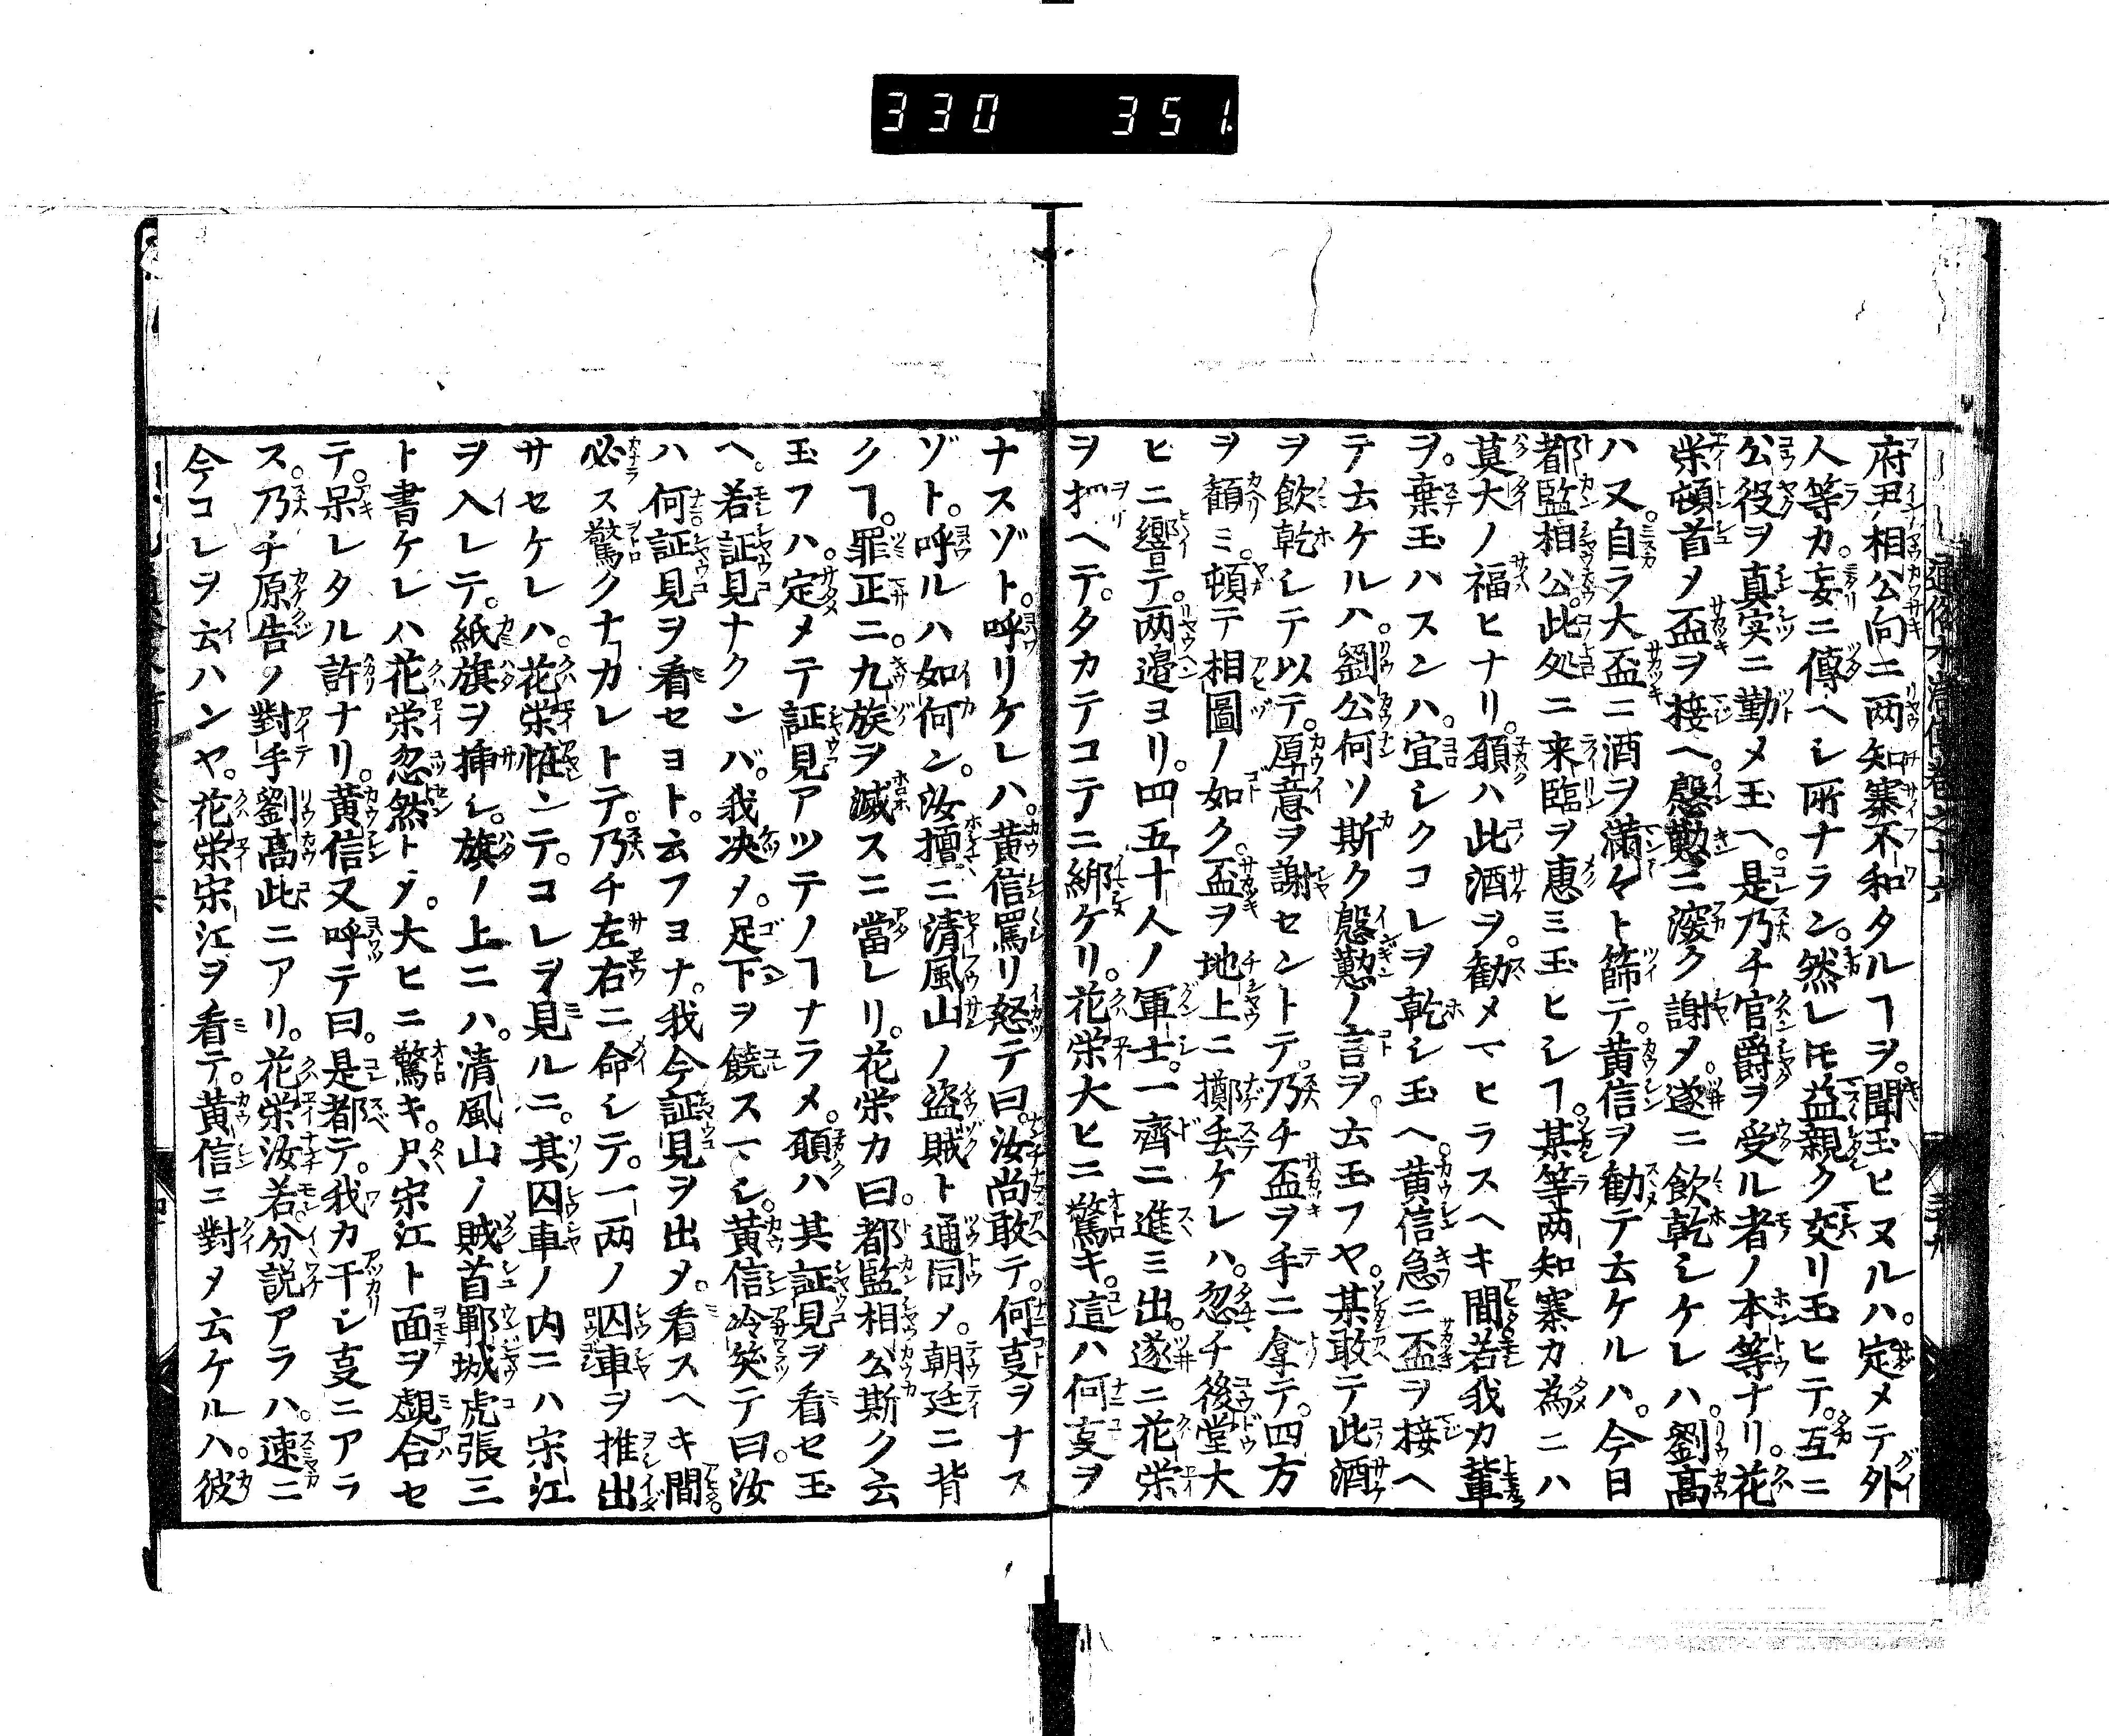 330 351.
府尹相公向ニ两知寨不和タルヿヲ。聞玉ヒヌルハ。定メテ外
人等カ。妄ニ傳ヘシ所ナラン。然レ𪜈益親ク交リ玉ヒテ。互ニ
公役ヲ真実ニ勤メ玉ヘ。是乃チ官爵ヲ受ル者ノ本等ナリ。花
栄頓首メ盃ヲ接ヘ。慇懃ニ深ク謝メ。遂ニ飲乾シケレハ。劉髙
ハ又。自ラ大盃ニ酒ヲ滿々ト篩テ。黄信ヲ勧テ云ケルハ。今日
都監相公。此処ニ来臨ヲ惠ミ玉ヒシヿ。某等两知寨カ為ニハ
莫大ノ福ヒナリ。願ハ此酒ヲ。勧メマヒラスヘキ間。若我カ輩
ヲ。棄玉ハスンハ。宜シクコレヲ乾シ玉ヘ。黄信急ニ盃ヲ接ヘ
テ云ケルハ。劉公何ソ斯ク慇懃ノ言ヲ。云玉フヤ。某敢テ此酒
ヲ飲乾シテ以テ。厚意ヲ謝セントテ。乃チ盃ヲ手ニ拿テ。四方
ヲ顧ミ。頓テ相圖ノ如ク。盃ヲ地上ニ擲丢ケレハ。忽チ後堂大
ヒニ響テ。两邉ヨリ。四五十人ノ軍士。一齊ニ進ミ出。遂ニ花栄
ヲ扌ヘテ。タカテコテニ綁ケリ。花栄大ヒニ驚キ。這ハ何叓ヲ
ナスゾト。呼リケレハ。黄信罵リ怒テ曰。汝尚敢テ。何叓ヲナス
ゾト。呼ルハ如何ン。汝擅ニ清風山ノ盗賊ト通同メ。朝廷ニ背
クヿ。罪正ニ。九族ヲ滅スニ當レリ。花栄カ曰。都監相公斯ク云
玉フハ。定メテ証見アツテノヿナラメ。願ハ其証見ヲ看セ玉
ヘ。若証見ナクンバ。我决メ。足下ヲ饒スマシ。黄信冷笑テ曰。汝
ハ何証見ヲ看セヨト。云フヨナ。我今証見ヲ出メ。看スヘキ間。
必ス驚クナカレトテ。乃チ左右ニ命シテ。一两ノ囚車ヲ推出
サセケレハ。花栄恠ンテ。コレヲ見ルニ。其囚車ノ内ニハ宋江
ヲ入レテ。紙旗ヲ挿シ。旗ノ上ニハ。清風山ノ賊首鄆城虎張三
ト書ケレハ花栄忽然トメ。大ヒニ驚キ。只宋江ト面ヲ覷合セ
テ。呆レタル許ナリ。黄信又呼テ曰。是都テ。我カ干シ叓ニアラ
ス。乃チ原告ノ對手劉髙此ニアリ。花栄汝若分説アラハ。速ニ
今コレヲ云ハンヤ。花栄宋江ヲ看テ。黄信ニ對メ云ケルハ。彼